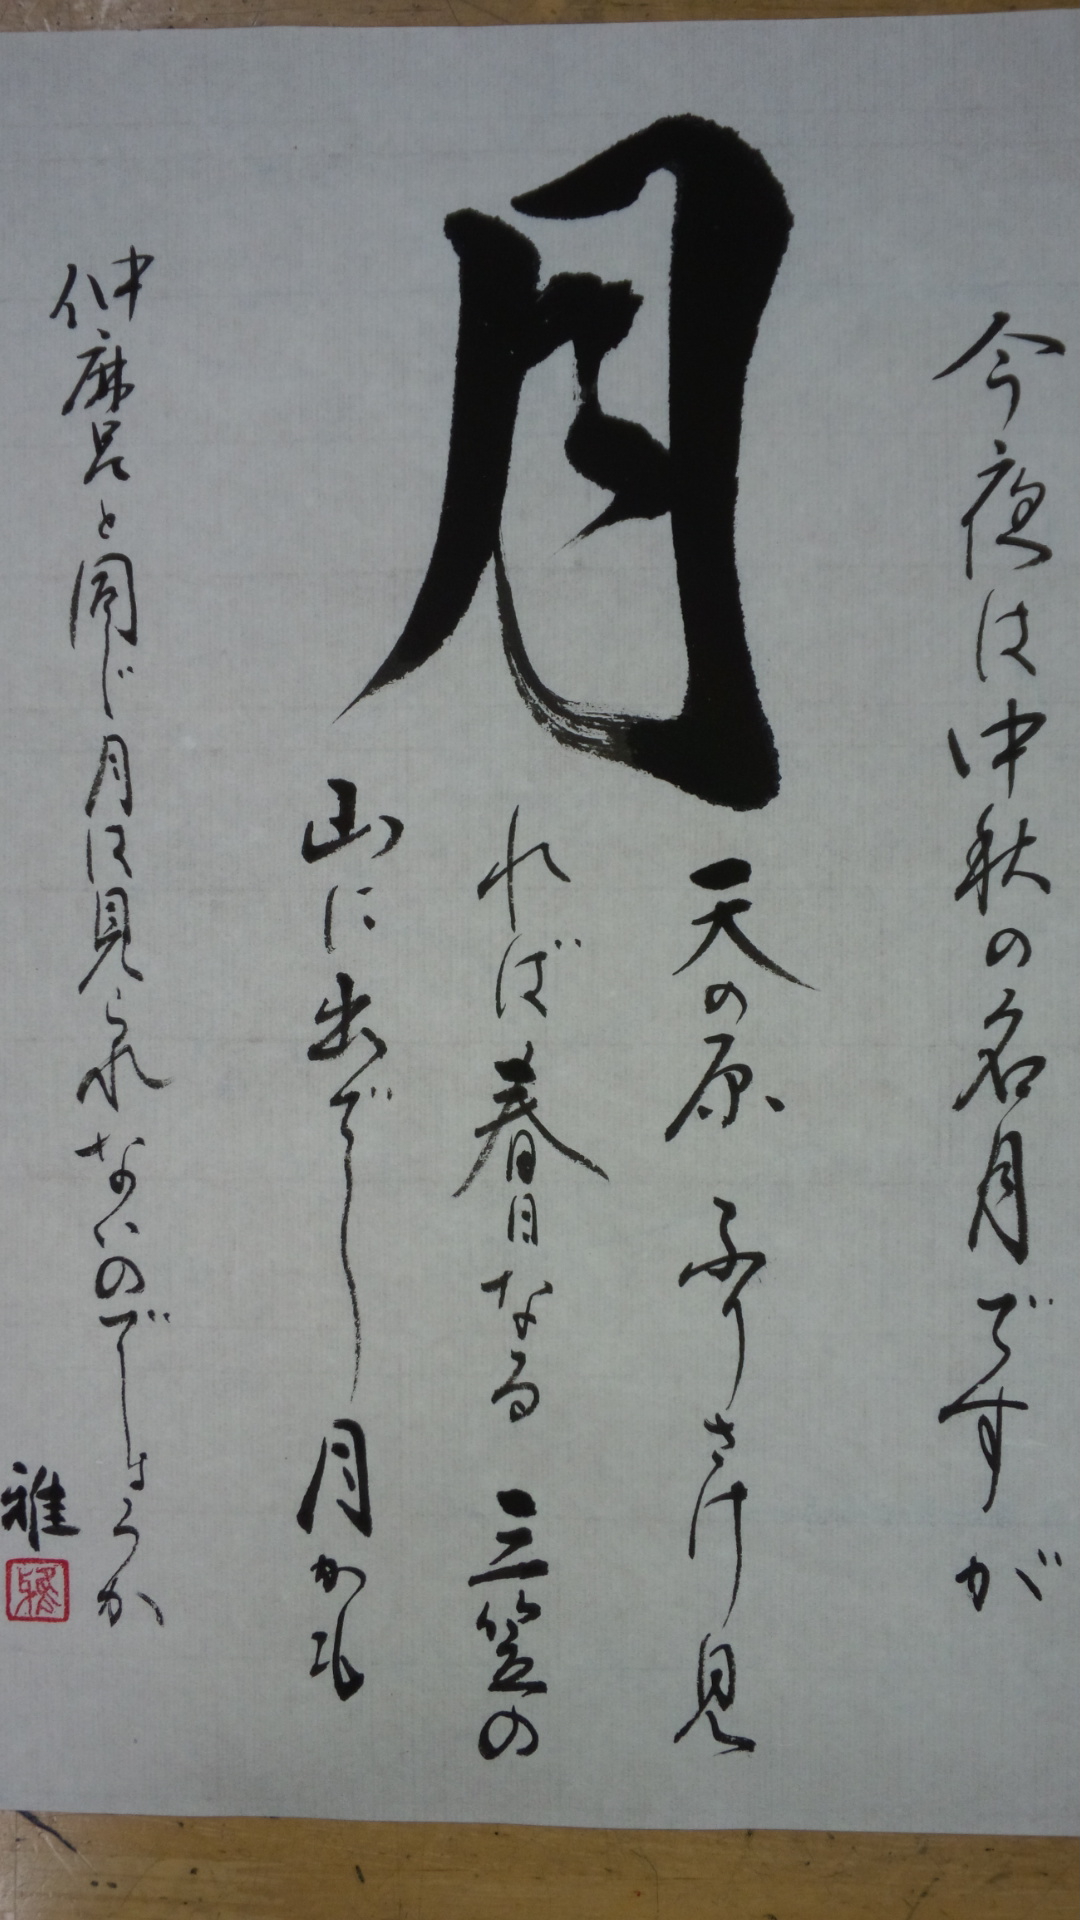 今夜は中秋の名月ですが
月
天の原 ふりさけ見
れば春日なる 三笠の
山に出でし 月かも
仲麻呂と同じ月は見られないのでしょうか
雅
雅